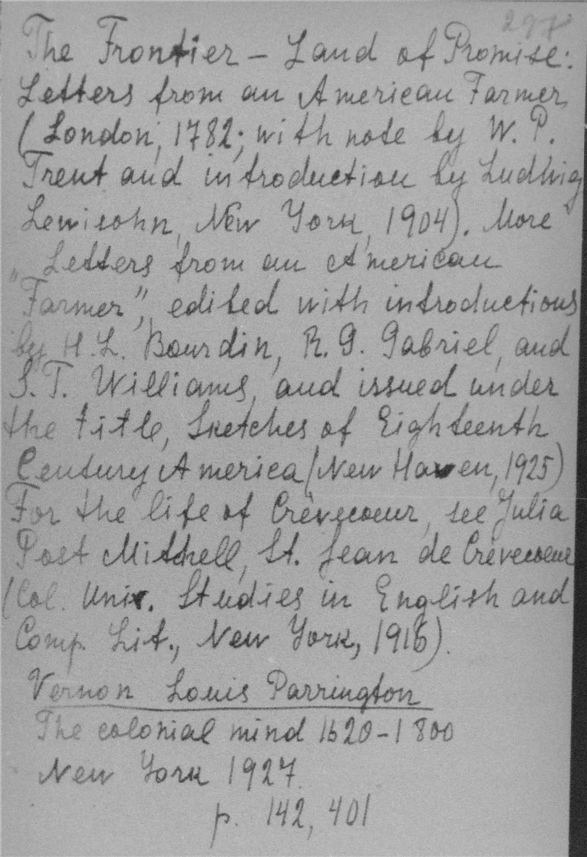 297
The Frontier – Land of Promise:
Letters from an American Farmer
(London, 1782; with note by W. P.
Trent and introduction by Ludwig
Lewisohn, New York, 1904). More
„Letters from an American
Farmer”, edited with introductions
by H. L. Bourdin, R. G. Gabriel, and
S. T. Williams, and issued under
the title, Sketches of Eighteenth
Century America (New Haven, 1925)
For the life of Crèvecoeur, see Julia
Post Mitchell, St. Jean de Crèvecoeur
(Col. Univ. Studies in English and
Comp. Lit., New York, 1916).
Vernon Louis Parrington
The colonial mind 1620–1800
New York 1927.
p. 142, 401